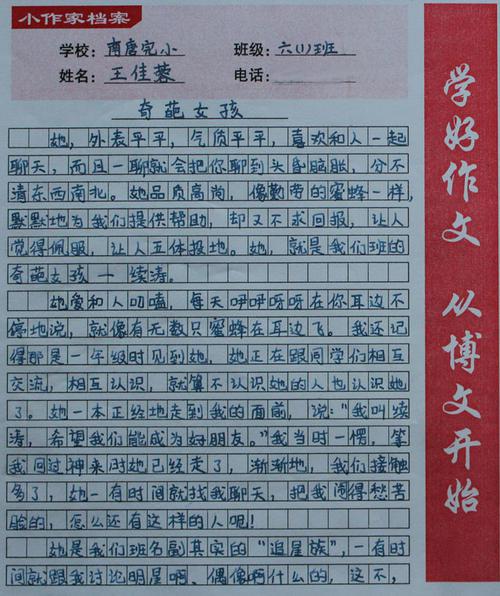 小作家档案
学校：南唐完小 班级：六(1)班
姓名：王佳蓉 电话：
奇葩女孩
她，外表平平，气质平平，喜欢和人一起
聊天，而且一聊就会把你聊到头昏脑胀，分不
清东西南北。她品质高尚，像勤劳的蜜蜂一样，
默默地为我们提供帮助，却又不求回报，让人
觉得佩服，让人五体投地。她，就是我们班的
奇葩女孩一续涛。
她爱和人叨嗑，每天咿咿呀呀在你耳边不
停地说，就像有无数只蜜蜂在耳边飞。我还记
得那是一年级时见到她，她正在跟同学们相互
交流，相互认识，就算不认识她的人也认识她
了。她一本正经地走到我的面前，说："我叫续
涛，希望我们能成为好朋友。"我当时一愣，等
我回过神来时她已经走了，渐渐地，我们接触
多了，她一有时间就找我聊天，把我闹得愁苦
脸的，怎么还有这样的人呢！
她是我们班名副其实的"追星族"，一有时
间就跟我讨论明星啊、偶像啊什么的，这不，
学好作文 从博文开始